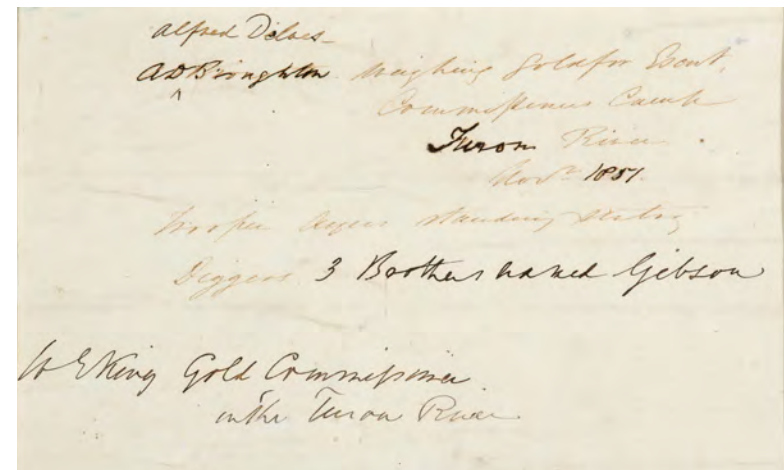 Alfred Delves
A D Broughton Weighing Gold for Escort,
Commissioners Camp
Turon River.
Novr 1851.
Trooper standing sentry
Diggers. 3 Brothers named Gibson
W E King Gold Commissioner
on the Turon River.